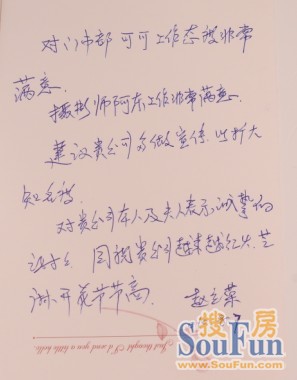 对门市部可可工作态度非常
满意.
摄影师阿东工作非常满意.
建议贵公司多做宣传.以扩大
知名度.
对贵公司本人及夫人表示诚挚的
同祝贵公司越来越红火.芝
麻开花节节高.
赵立荣
搜房
SouFun
www.SouFun.com
Just thought I'd send you a little hello